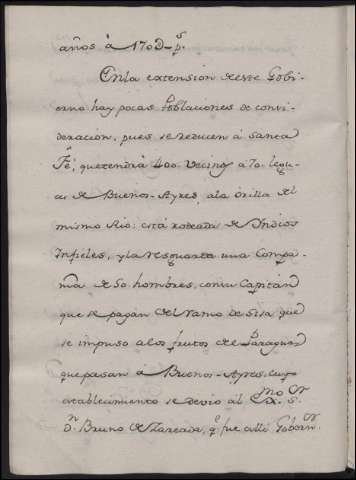 años à 170 D.s p.s
En la extension de este Gobi-
erno hay pocas Poblaciones de consi-
deracion, pues se reducen á Santa
Fé, que tendrà 400 vecinos à 70. legu-
as de Buenos-Ayres a la orilla del
mismo Rio: está rodeada de Indios
Infieles, y la resguarda una Compa-
ñia de 50 hombres, con su Capitán
que se pagan del Ramo de Sisa, que
se impuso a los frutos del Paraguay
que pasan á Buenos-Ayres, cuyo
establecimiento se devio al Ex.mo S.or
D.n Bruno de Zavala, q.e fue alli Gobern.or